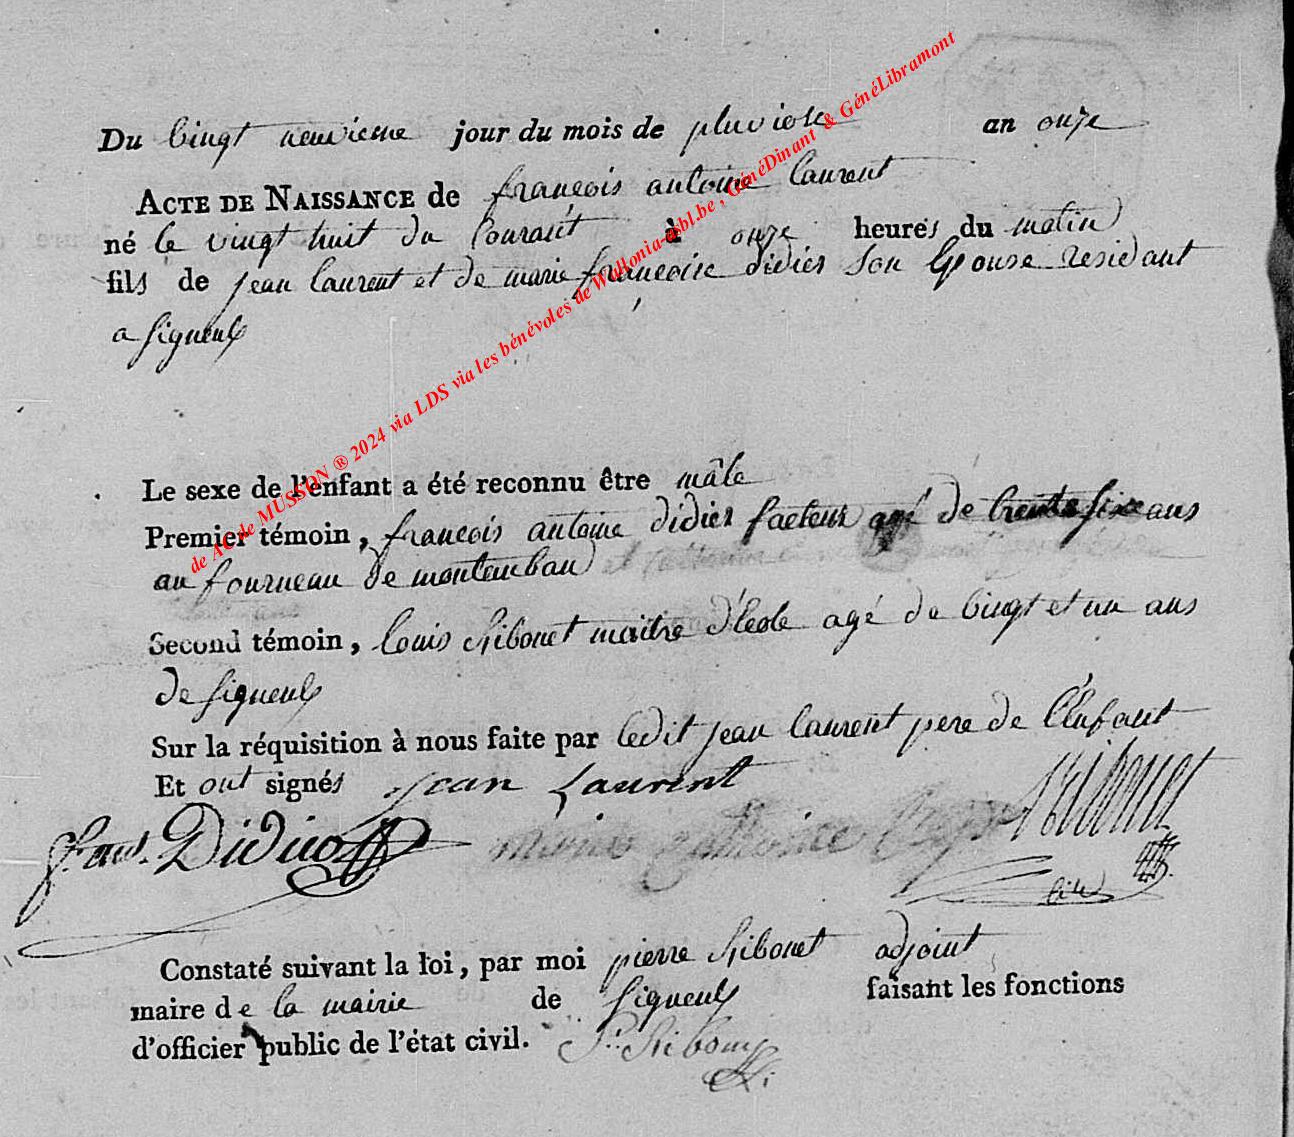 Du vingt neuvieme jour du mois de pluviose an onze
ACTE DE NAISSANCE de françois antoine laurent
né le vingt huit du Courant à onze heures du matin
fils de jean laurent et de marie françoise didier son Epouse residant
a signeulx
Le sexe de l'enfant a été reconnu être mâle
Premier témoin, francois antoine didier facteur agé de trente six ans
au fourneau de montauban
Second témoin, louis Ribonet maitre d'Ecole agé de vingt et un ans
de signeulx
Sur la réquisition à nous faite par ledit jean laurent pere de l'Enfant
Et ont signés jean Laurent
Didier
Constaté suivant la loi, par moi pierre Ribonet adjoint
maire de la mairie de signeulx faisant les fonctions
d'officier public de l'état civil. P. Ribonet
de AC de MUSSON ® 2024 via LDS via les bénévoles de Wallonia-asbl.be, GénéDinant & GénéLibramont